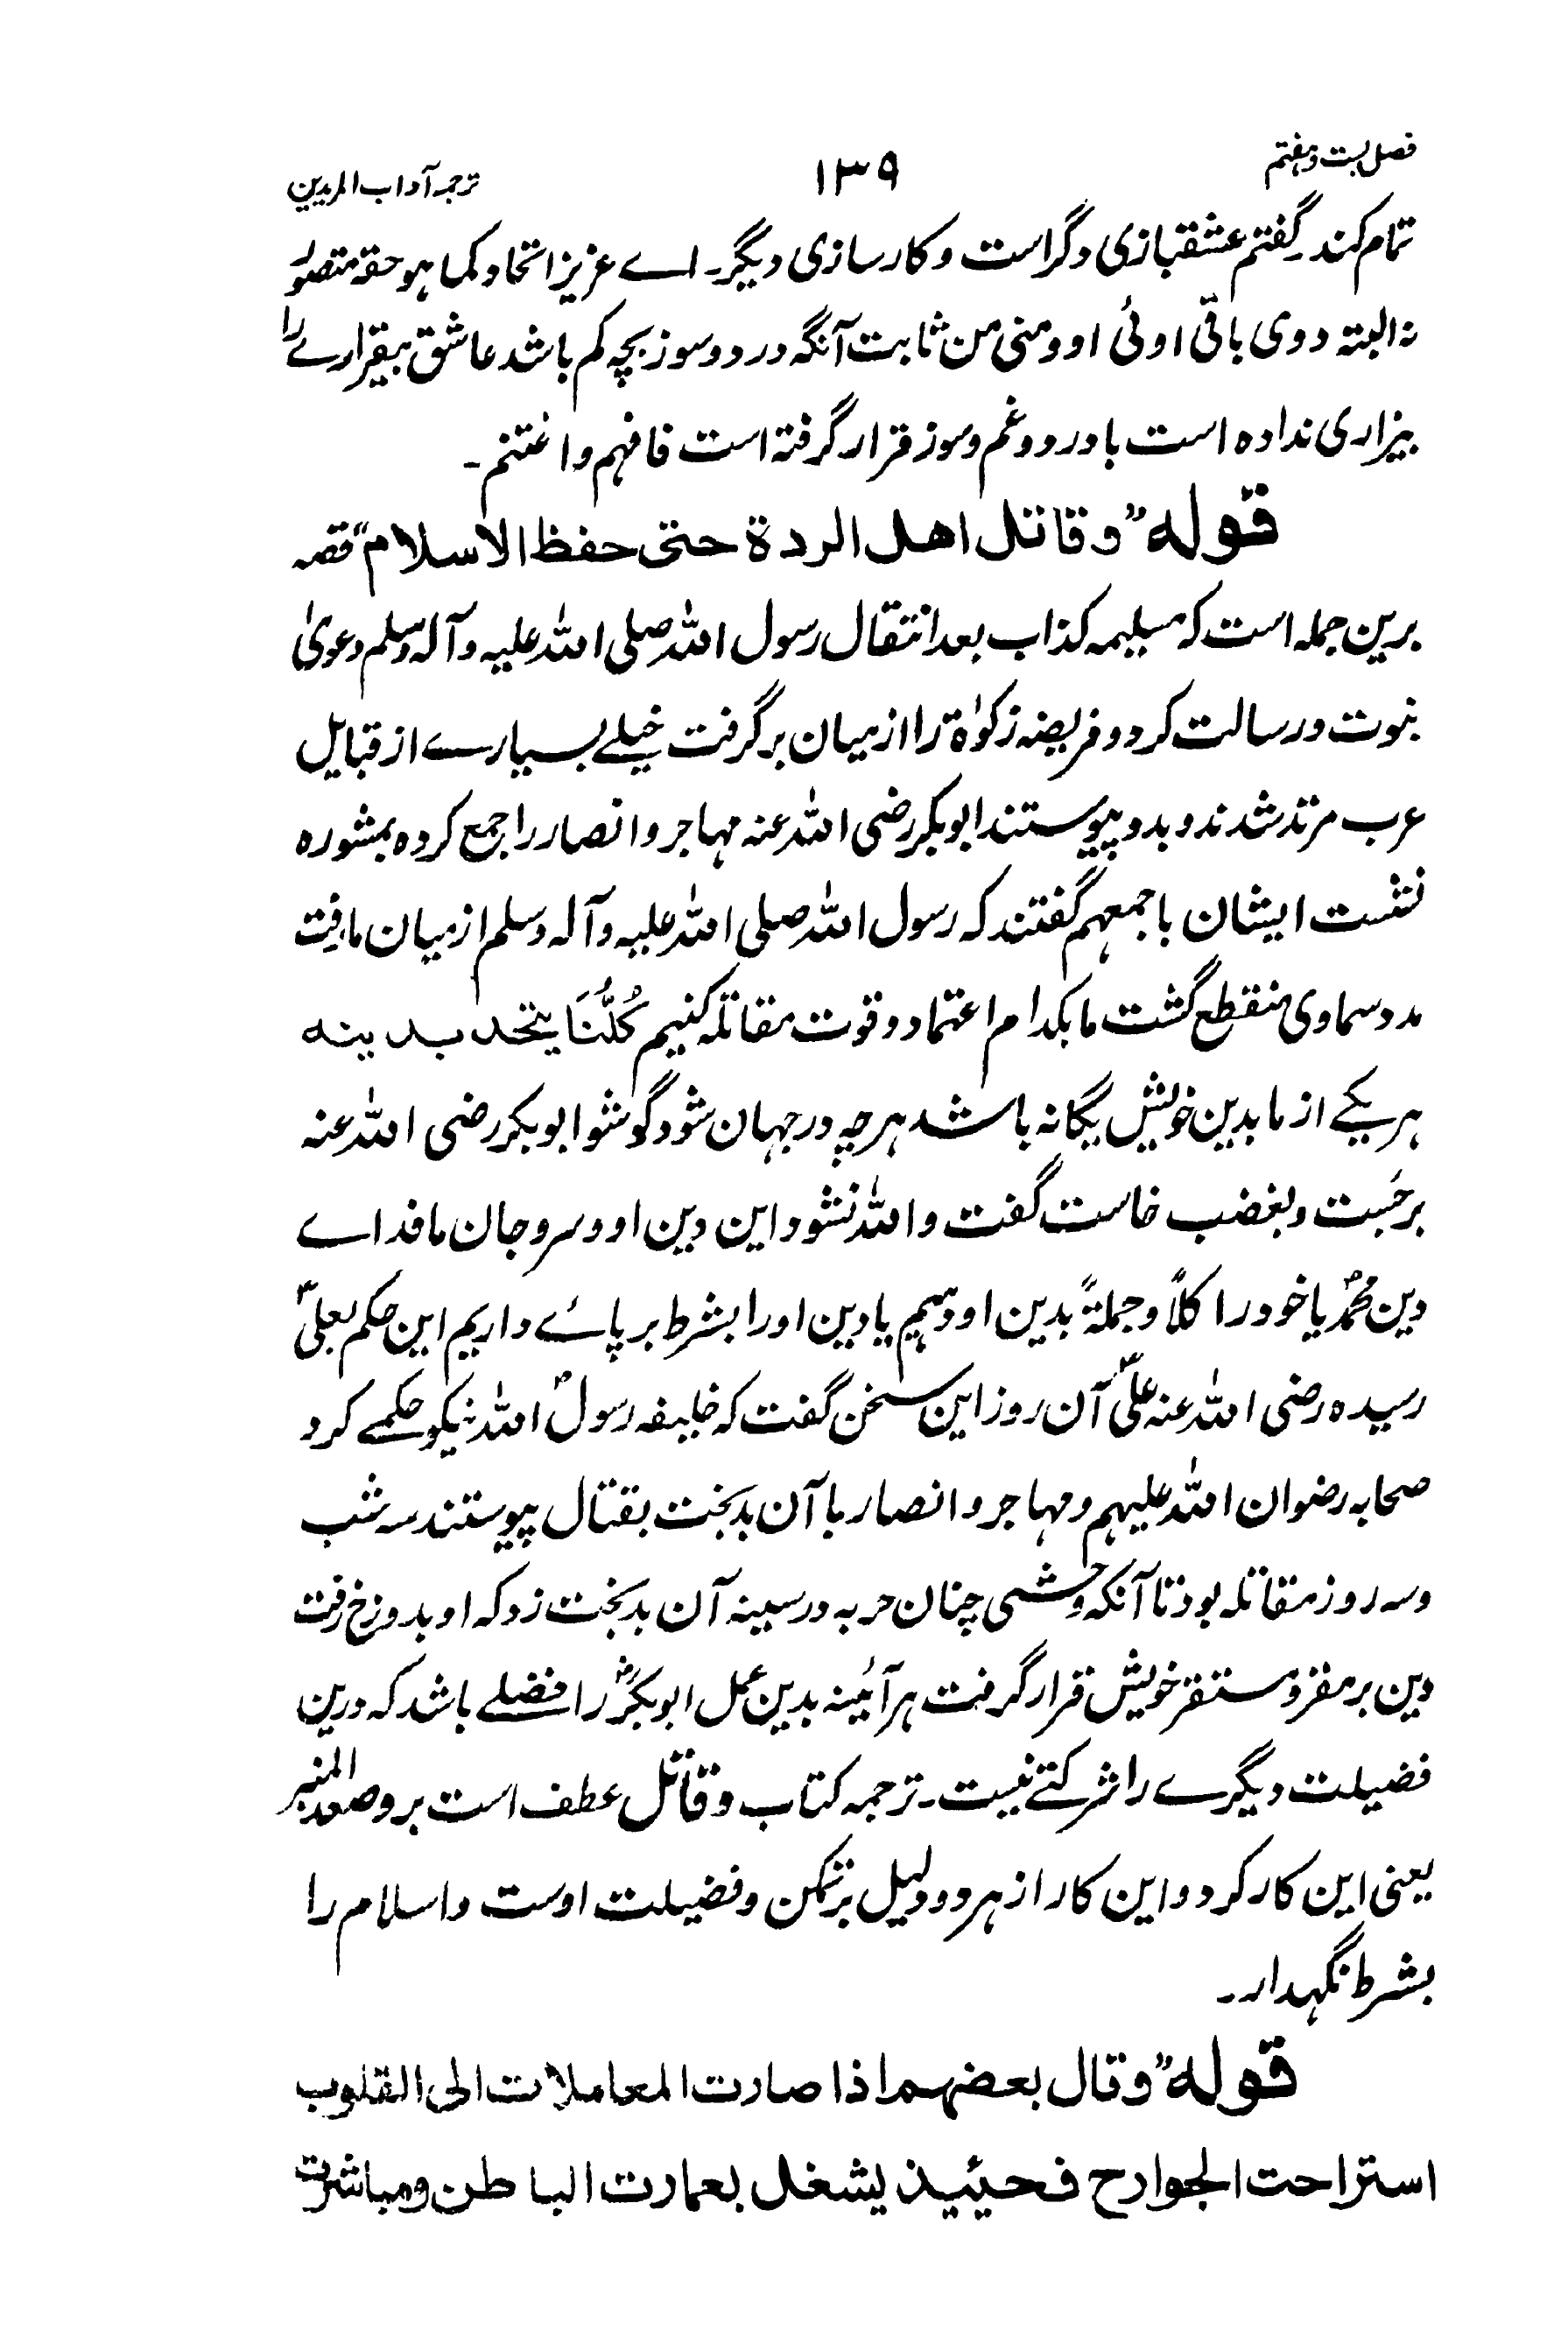 فصل بست و هفتم
۱۳۹
ترجمہ آداب المریدین
تمام کند۔ گفتم عشقبازی دگر است و کارسازی دیگر۔ اے عزیز اتحاد کما هو حقہ متصور
نہ البتہ دوی باقی اوئی او و منی من ثابت آنگہ درد و سوز بچہ کم باشد عاشق بیقرارے را
بیزاری نداده است با درد و غم و سوز قرار گرفتہ است فافہم واغتنم۔
قولہ "وقاتل اهل الردة حتی حفظ الاسلام" قصہ
برین جملہ است کہ مسیلیمہ کذاب بعد انتقال رسول اللہ صلی اللہ علیہ وآلہ وسلم دعویٰ
نبوت و رسالت کرد و فریضہ زکوٰة را از میان برگرفت خیلے بسیارے از قبایل
عرب مرتد شدند و بدو پیوستند ابوبکر رضی اللہ عنہ مہاجر و انصار را جمع کردہ بمشورہ
نشست ایشان باجمعہم گفتند کہ رسول اللہ صلی اللہ علیہ وآلہ وسلم از میان ما رفت
مدد سماوی منقطع گشت ما بکدام اعتماد و قوت مقاتلہ کنیم کُلُّنَا یتحد بدینہ
ہر یکے از ما بدین خویش یگانہ باشد ہرچہ در جہان شود گو شو ابوبکر رضی اللہ عنہ
برجَست و بغضب خاست گفت واللہ نشود این دین او و سر و جان ما فداے
دین محمدؐ یا خود را کلاً و جملةً بدین او دہیم یا دین او را بشرط بر پائے داریم این حکم بعلیؓ
رسیدہ رضی اللہ عنہ علیؓ آن روز این سخن گفت کہ خلیفہ رسولؐ اللہ نیکو حکمے کرد
صحابہ رضوان اللہ علیہم و مہاجر و انصار با آن بدبخت بقتال پیوستند سہ شب
و سہ روز مقاتلہ بود تا آنکہ وحشی چنان حربہ در سینہ آن بدبخت زد کہ او بدوزخ رفت
دین بر مفر و مستقر خویش قرار گرفت ہر آئینہ بدین عمل ابوبکرؓ را فضلے باشد کہ درین
فضیلت دیگرے را شرکتے نیست۔ ترجمہ کتاب وقاتل عطف است بر وصعد المنبر
یعنی این کار کرد و این کار از ہر دو دلیل بر تمکن و فضیلت اوست و اسلام را
بشرط نگہدار۔
قولہ "وقال بعضهم اذا صارت المعاملات الی القلوب
استراحت الجوارح فحیئیذ یشغل بعمارت الباطن ومباشرت